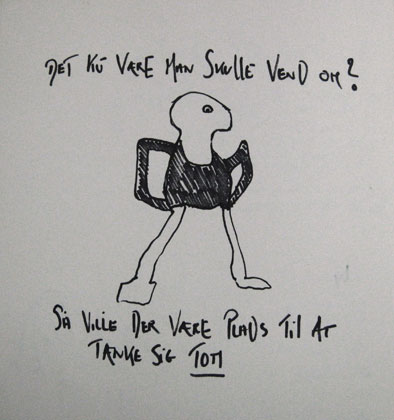 DET KU VÆRE MAN SKULLE VEND OM?
SÅ VILLE DER VÆRE PLADS TIL AT
TANKE SIG TOM